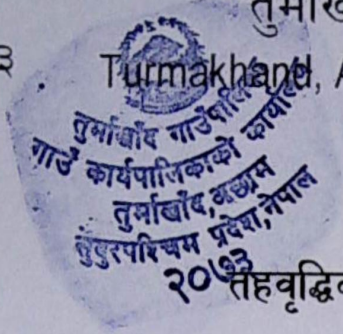 तुर्माख
३
Turmakhand, A
तुर्माखाँद गाउँपालिका
गाउँ कार्यपालिकाको कार्यालय
तुर्माखाँद,अछाम
सुदुरपश्चिम प्रदेश,नेपाल
२०७३
तहवृद्धि